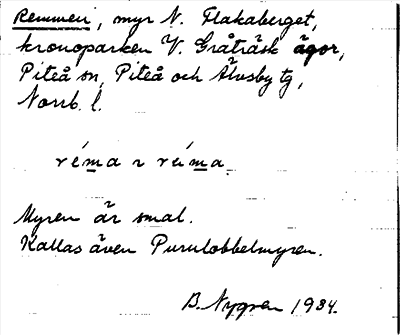 Remmen, myr N. Flakaberget,
kronoparken V. Gråträsk ägor,
Piteå sn, Piteå och Älvsby tg,
Norrb. l.
réma ɿ réi̯ma
Myren är smal.
Kallas även Purulobbelmyren.
B. Nygren 1934.